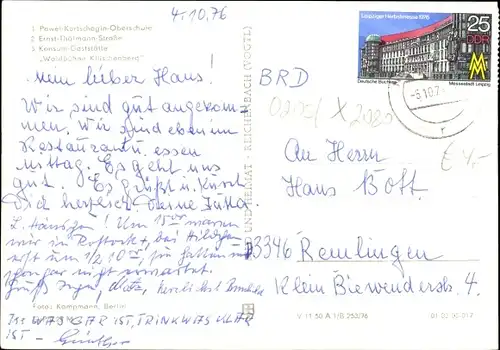 4.10.76
1 Pawel-Kortschagin-Oberschule
2 Ernst-Thälmann-Straße
3 Konsum-Gaststätte
"Waldbühne Klüschenberg"
Mein lieber Hans!
Wir sind gut angekom-
men, Wir sind eben im
Restaurant u. essen
Mittag. Es geht uns
gut. Es grüßt u. küßt
Dich herzlich Deine Jutta
L. Hänschen! Um 15 waren
wir in Rostock, bei
erst um 1/2 10
gar nicht erwartet.
Foto: Kampmann, Berlin
ISS WAS GAR IST, TRINK WAS KLAR
IST - Günther
UND HEIMAT · REICHENBACH (VOGTL)
Leipziger Herbstmesse 1976
25
DDR
Deutsche Bücherei
Messestadt Leipzig
BRD
X 2080
€ 4,-
An Herrn
Hans Bott
3346 Remlingen
Klein Biewenderstr. 4.
V 11 50 A 1/B 253/76
01 02 30 017